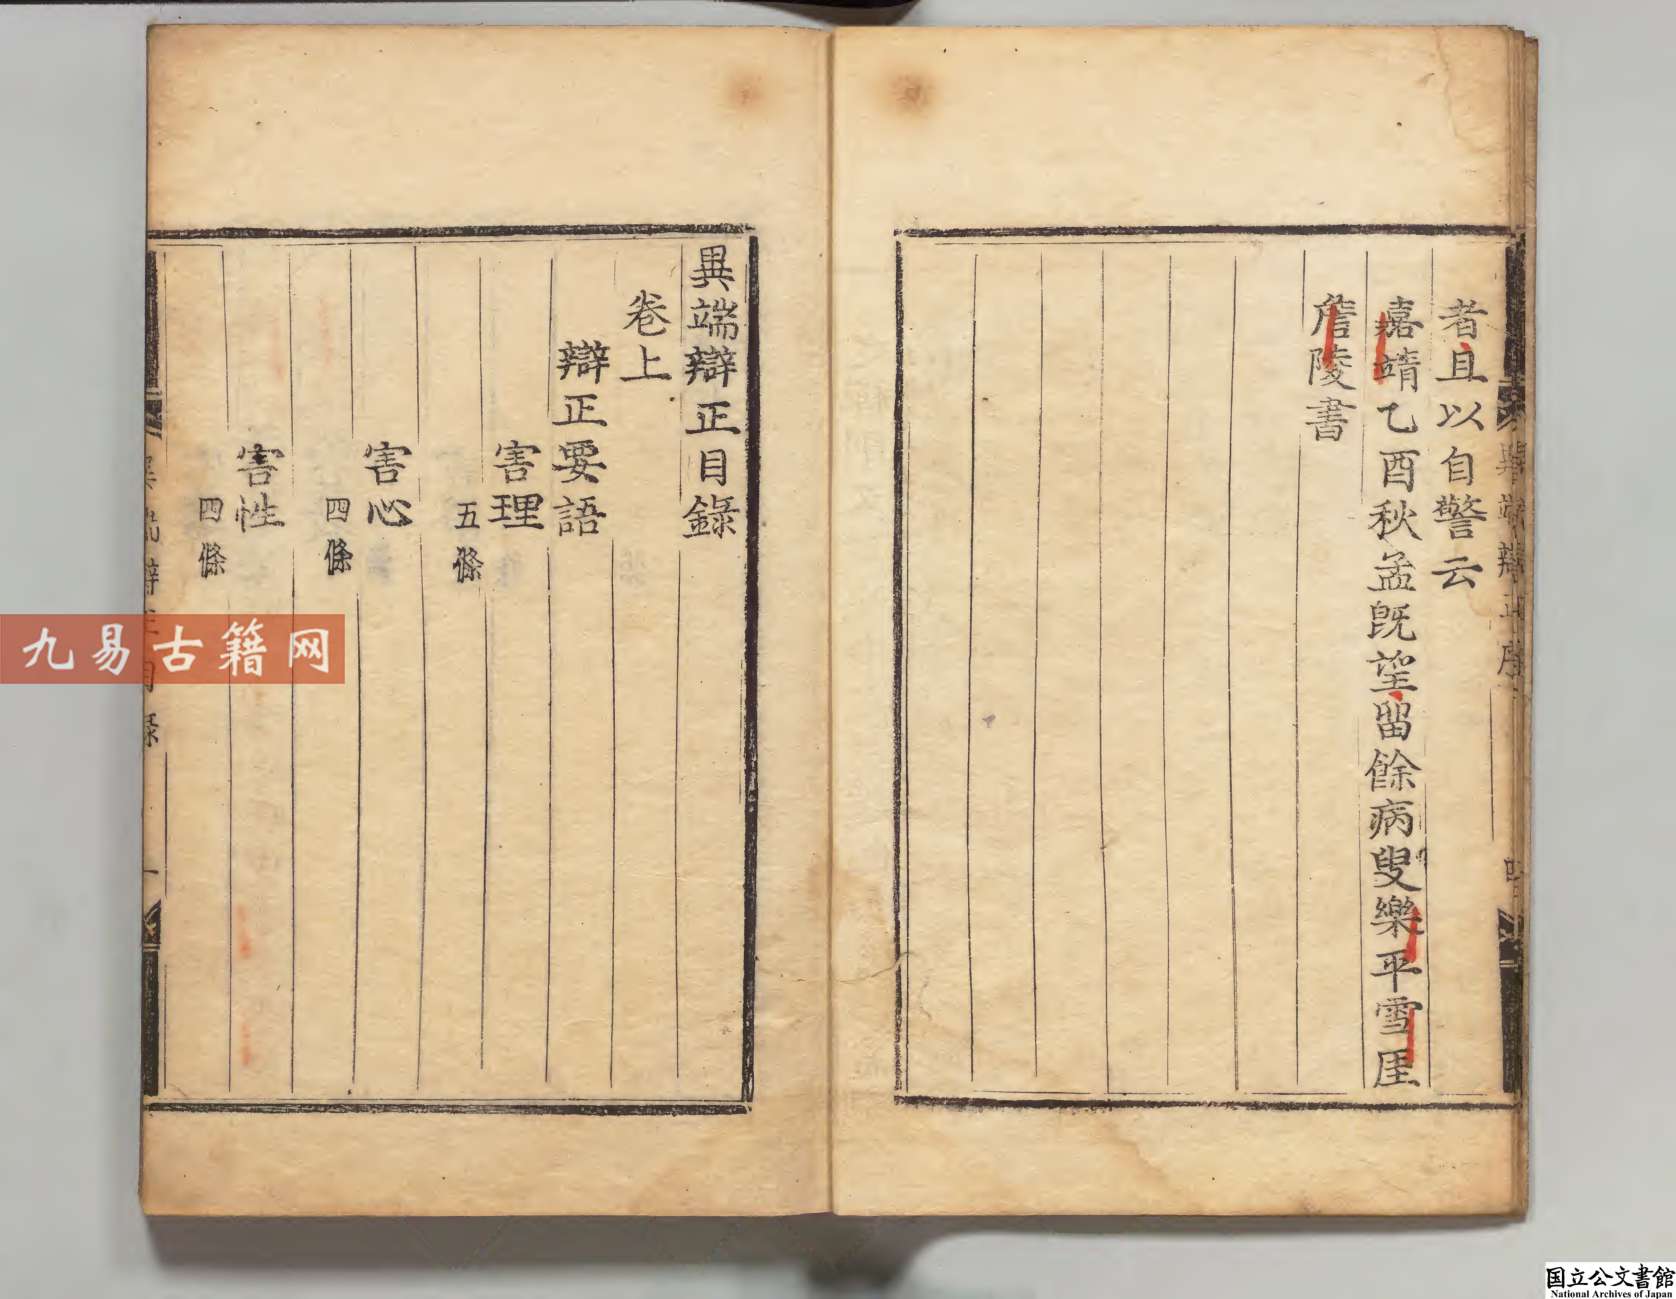 者且以自警云
嘉靖乙酉秋孟既望留餘病叟樂平雪厓
詹陵書
異端辯正序
異端辯正目錄
卷上
辯正要語
害理
五條
害心
四條
害性
四條
九易古籍网
国立公文書館
National Archives of Japan